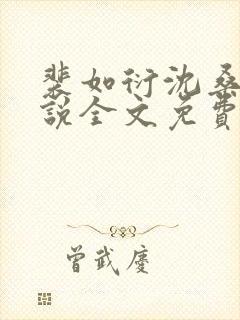 裴如衍沈桑
说全文免费
曾武庆